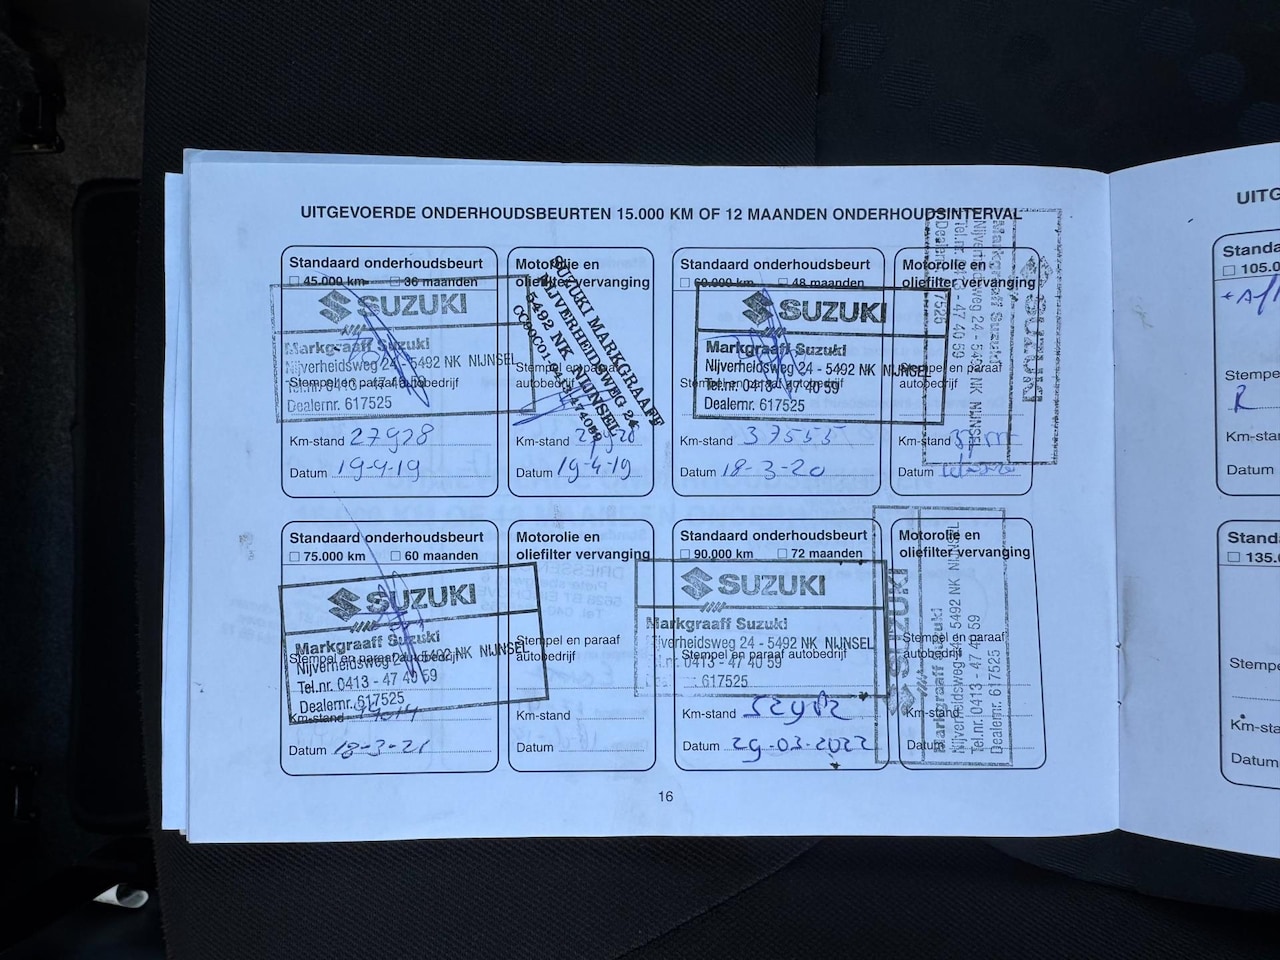 UITGEVOERDE ONDERHOUDSBEURTEN 15.000 KM OF 12 MAANDEN ONDERHOUDSINTERVAL
Standaard onderhoudsbeurt
45.000 km 36 maanden
SUZUKI
Markgraaff Suzuki
Nijverheidsweg 24 - 5492 NK NIJNSEL
Stempel en paraaf autobedrijf
Dealernr. 617525
Km-stand 27928
Datum 19-4-19
Motorolie en
oliefilter vervanging
SUZUKI MARKGRAAFF
NIJVERHEIDSWEG 24
5492 NK NIJNSEL
Stempel en paraaf
autobedrijf
Km-stand
Datum 19-4-19
Standaard onderhoudsbeurt
60.000 km 48 maanden
SUZUKI
Markgraaff Suzuki
Nijverheidsweg 24 - 5492 NK NIJNSEL
Stempel en paraaf autobedrijf
Tel.nr. 0413 - 47 40 59
Dealernr. 617525
Km-stand 37555
Datum 18-3-20
Motorolie en
oliefilter vervanging
SUZUKI
Markgraaff Suzuki
Nijverheidsweg 24 - 5492 NK NIJNSEL
Tel.nr. 0413 - 47 40 59
Dealernr. 617525
Stempel en paraaf
autobedrijf
Km-stand
Datum
Standaard onderhoudsbeurt
75.000 km 60 maanden
SUZUKI
Markgraaff Suzuki
Nijverheidsweg 24 - 5492 NK NIJNSEL
Stempel en paraaf autobedrijf
Tel.nr. 0413 - 47 40 59
Dealernr. 617525
Km-stand
Datum 18-3-21
Motorolie en
oliefilter vervanging
Stempel en paraaf
autobedrijf
Km-stand
Datum
Standaard onderhoudsbeurt
90.000 km 72 maanden
SUZUKI
Markgraaff Suzuki
Nijverheidsweg 24 - 5492 NK NIJNSEL
Stempel en paraaf autobedrijf
Tel.nr. 0413 - 47 40 59
617525
Km-stand
Datum 29-03-2022
Motorolie en
oliefilter vervanging
SUZUKI
Markgraaff Suzuki
Nijverheidsweg 24 - 5492 NK NIJNSEL
Tel.nr. 0413 - 47 40 59
Dealernr. 617525
Stempel en paraaf
autobedrijf
Km-stand
Datum
16
UITG
Standa
105.0
Stempe
R
Km-sta
Datum
Standa
135.0
Stempe
Km-sta
Datum